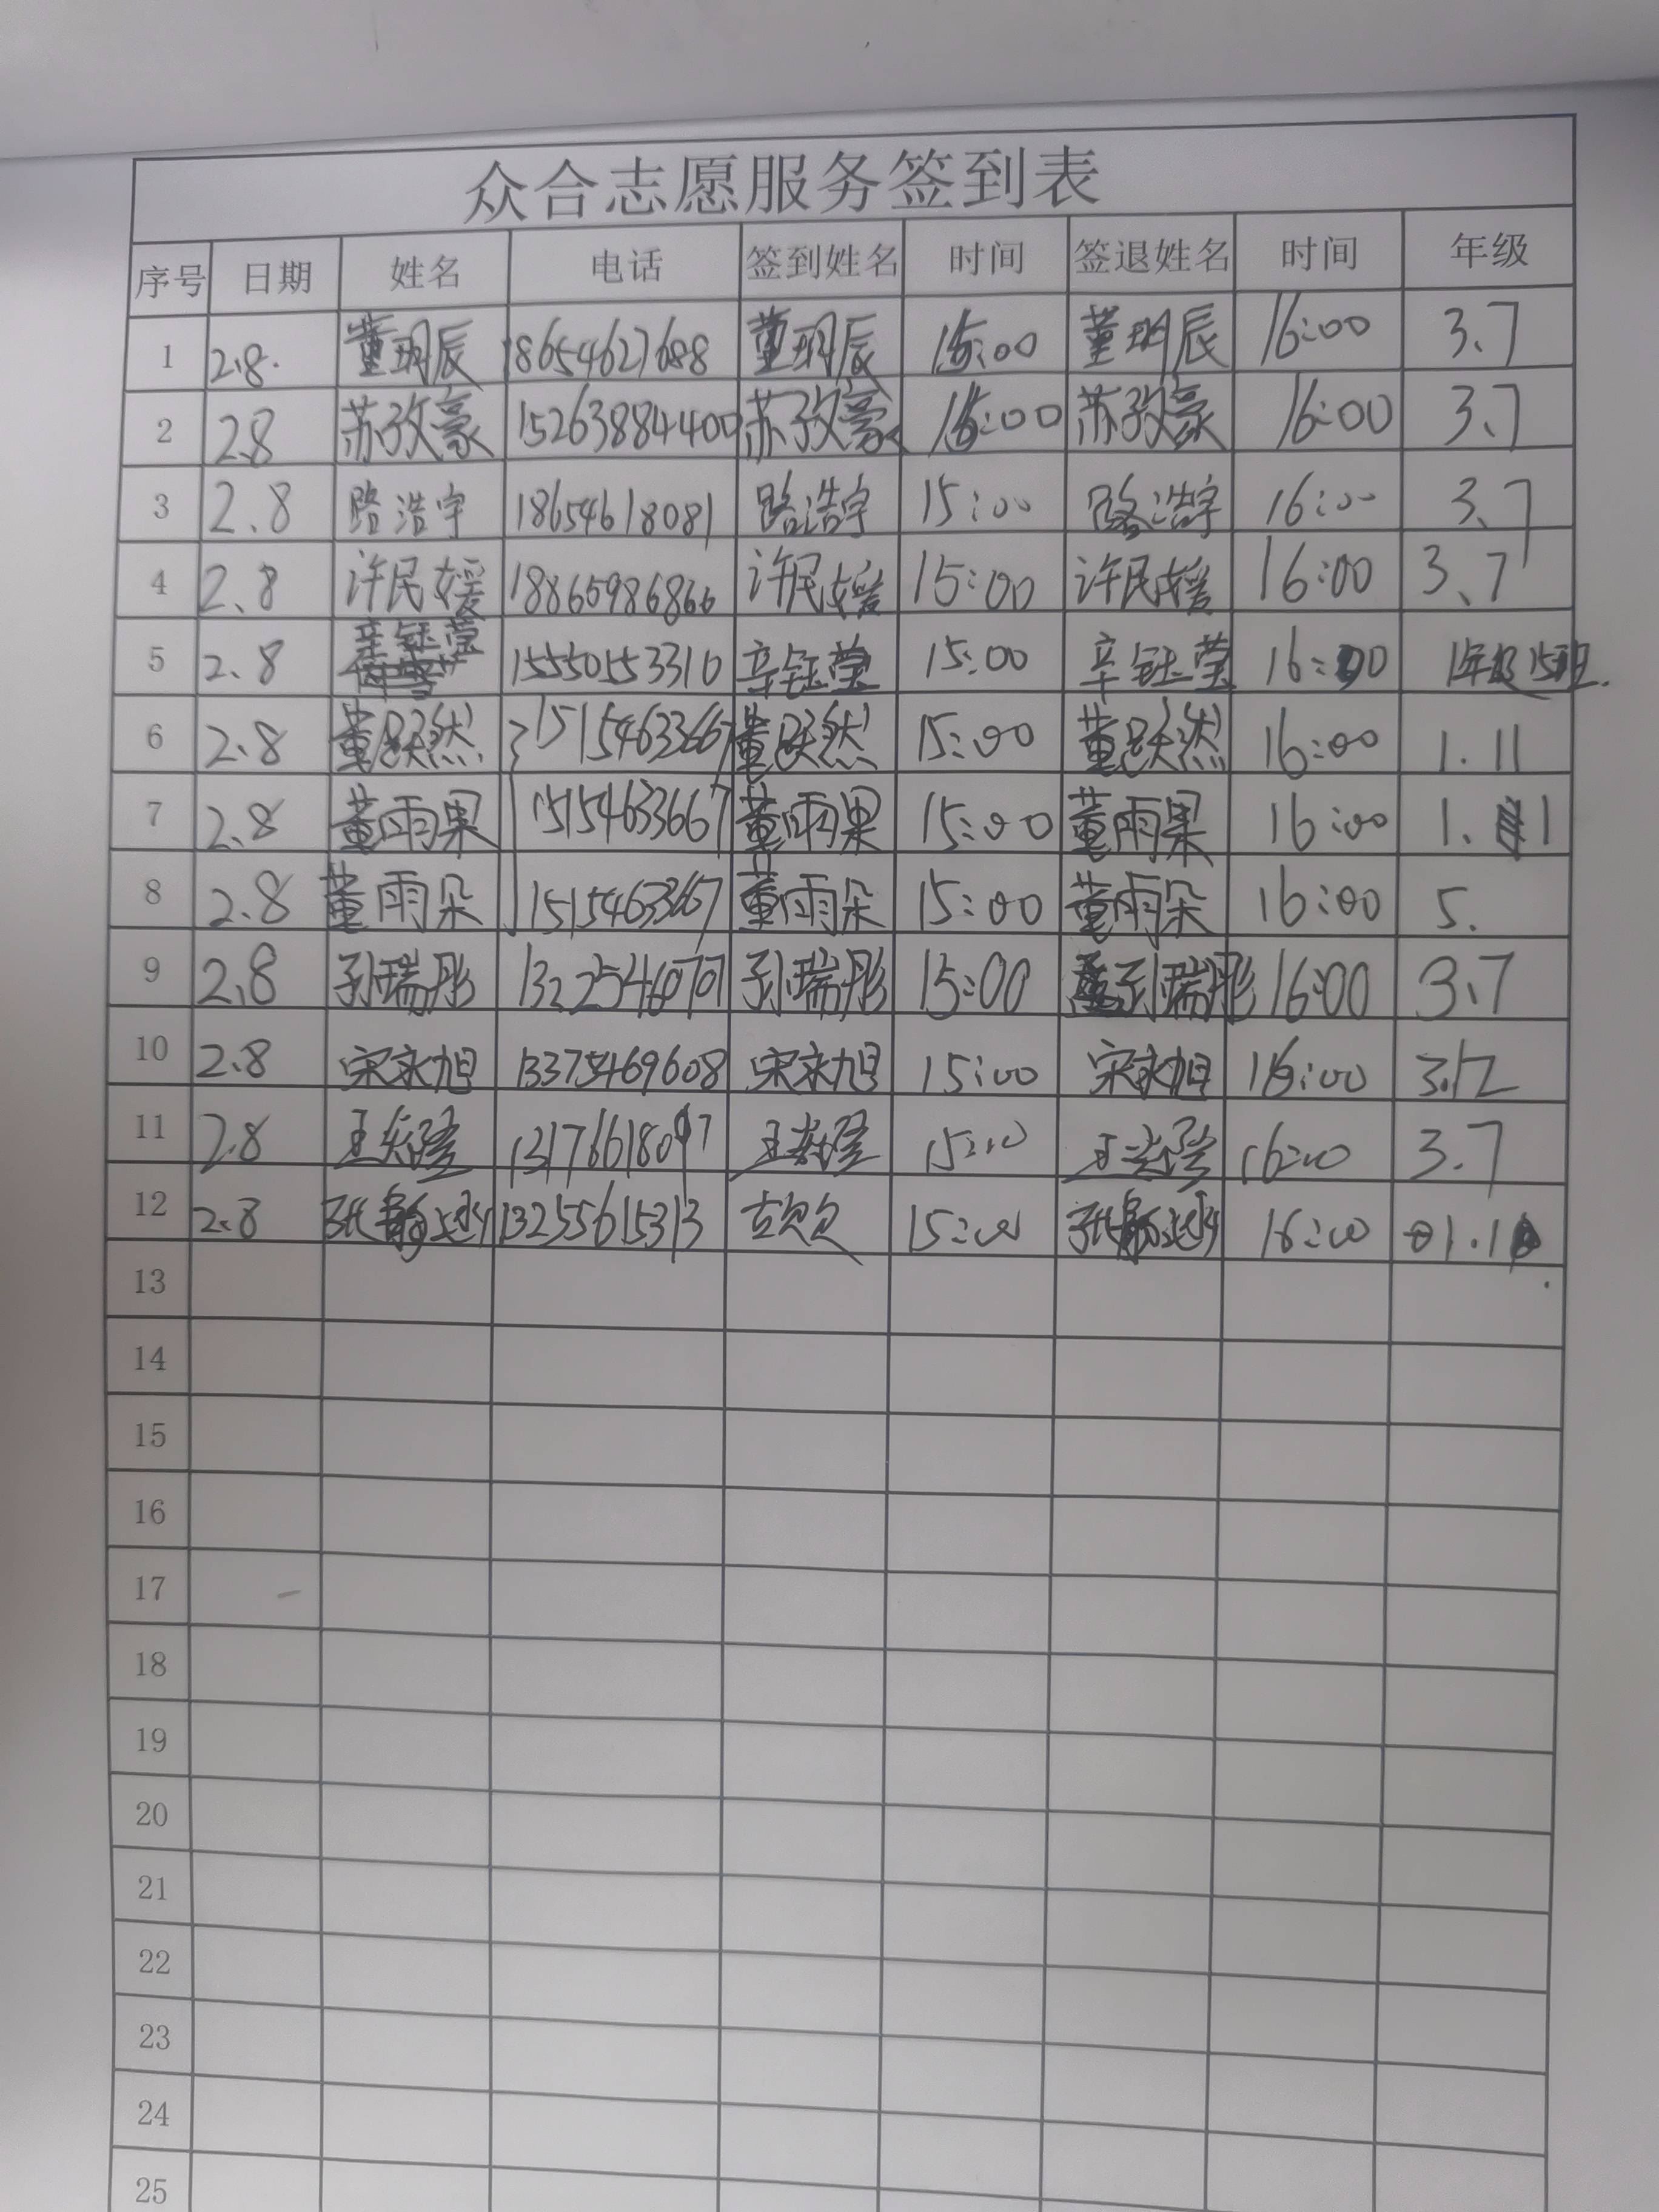 众合志愿服务签到表
序号 日期 姓名 电话 签到姓名 时间 签退姓名 时间 年级
1 2.8. 董玥辰 18654627688 董玥辰 15:00 董玥辰 16:00 3.7
2 2.8 苏孜豪 15263884400 苏孜豪 15:00 苏孜豪 16:00 3.7
3 2.8 路浩宇 18654618081 路浩宇 15:00 路浩宇 16:00 3.7
4 2.8 许民媛 18865986866 许民媛 15:00 许民媛 16:00 3.7
5 2.8 辛钰莹 15550553310 辛钰莹 15:00 辛钰莹 16:00 1年级15班.
6 2.8 董跃然 15154633667 董跃然 15:00 董跃然 16:00 1.11
7 2.8 董雨果 15154633667 董雨果 15:00 董雨果 16:00 1.
8 2.8 董雨朵 15154633667 董雨朵 15:00 董雨朵 16:00 5.
9 2.8 孙瑞彤 孙瑞彤 15:00 孙瑞彤 16:00 3.7
10 2.8 宋永旭 13375469608 宋永旭 15:00 宋永旭 16:00 3.12
11 2.8 15:00 16:00 3.7
12 2.8 13255615313 15:00 16:00
13
14
15
16
17
18
19
20
21
22
23
24
25